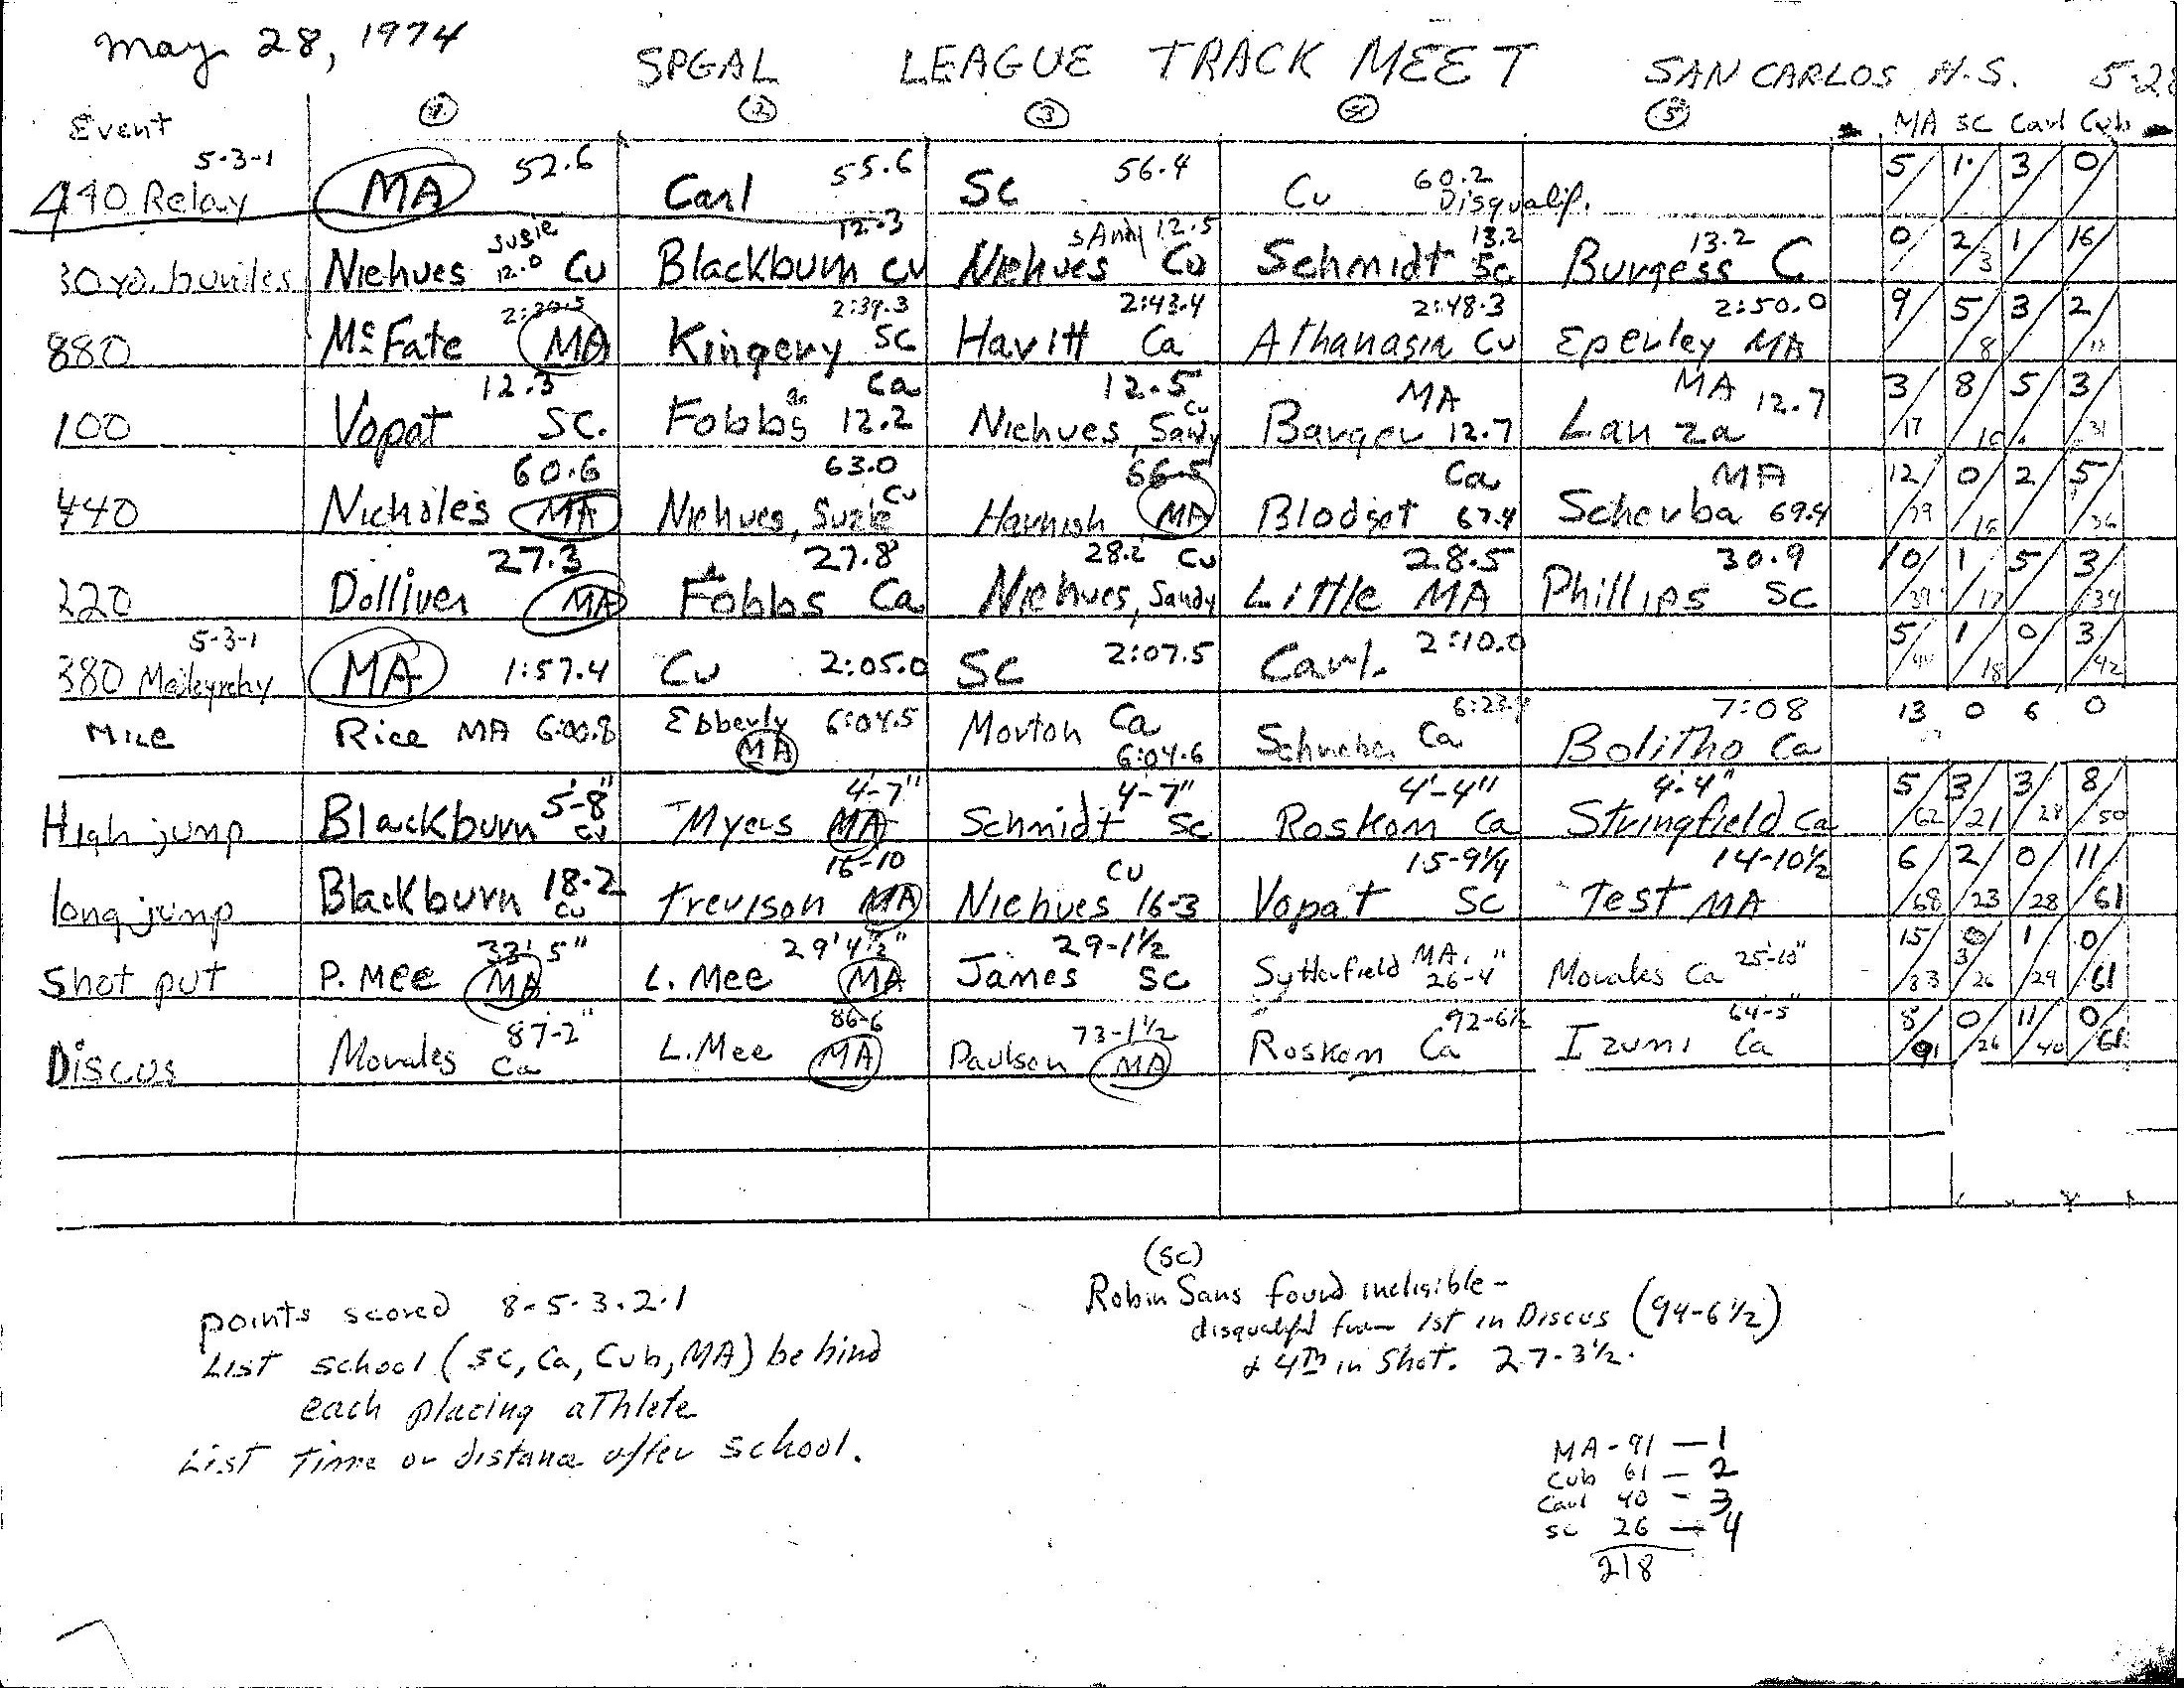 May 28, 1974
SPGAL LEAGUE TRACK MEET SAN CARLOS H.S. 5-28
Event 1 2 3 4 5 MA SC Carl Cub
5-3-1
440 Relay MA 52.6 Carl 55.6 SC 56.4 Cu 60.2 Disqualif. 5 1 3 0
30 yd. hurdles Niehues Susie 12.0 Cu Blackburn 12.3 Cu Niehues Sandy 12.5 Cu Schmidt 13.2 SC Burgess 13.2 C 0 2/3 1 16
880 McFate MA Kingery 2:39.3 SC Havitt 2:43.4 Ca Athanasia 2:48.3 Cu Eperley 2:50.0 MA 9 5/8 3 2
100 Vopat 12.3 SC. Fobbs Ca 12.2 Niehues, Sandy 12.5 Cu Barger MA 12.7 Lanza MA 12.7 3/17 8/16 5 3/31
440 Nicholes 60.6 MA Niehues, Suzie 63.0 Cu Harnish 66.5 MA Blodget Ca 67.4 Scherba MA 69.4 12/29 0/16 2 5/36
220 Dolliver 27.3 MA Fobbs 27.8 Ca Niehues, Sandy 28.2 Cu Little 28.5 MA Phillips 30.9 SC 10/39 1/17 5 3/39
5-3-1
880 Medleyrelay MA 1:57.4 Cu 2:05.0 SC 2:07.5 Carl. 2:10.0 5/44 1/18 0 3/42
Mile Rice MA 6:00.8 Ebberly 6:04.5 MA Morton Ca 6:04.6 Ca Bolitho 7:08 Ca 13 0 6 0
High jump Blackburn 5'-8" Cu Myers 4'-7" MA Schmidt 4-7" SC Roskom 4'-4" Ca Stringfield 4'-4" Ca 5/62 3/21 3/28 8/50
long jump Blackburn 18-2 Cu Trevison 16-10 MA Niehues Cu 16-3 Vopat 15-9¼ SC Test 14-10½ MA 6/68 2/23 0/28 11/61
Shot put P. Mee 33' 5" MA L. Mee 29'4½" MA James 29-1½ SC Sytterfield MA. 26-4" Morales Ca 25-10" 15/83 3/26 1/29 0/61
Discus Morales 87-2" Ca L. Mee 86-6 MA Paulson 73-1½ MA Roskom 92-6½ Ca Izumi 64-5" Ca 8/91 0/26 11/40 0/61
points scored 8-5-3-2-1
List school (SC, Ca, Cub, MA) behind
each placing athlete
List Time or distance after school.
(SC)
Robin Sans found ineligible -
disqualifd from 1st in Discus (94-6½)
& 4th in Shot. 27-3½.
MA - 91 — 1
Cub 61 — 2
Carl 40 - 3
SC 26 — 4
218